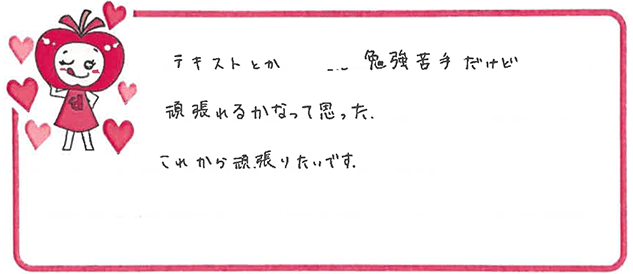 テキストとか ... 勉強苦手だけど
頑張れるかなって思った.
これから頑張りたいです.